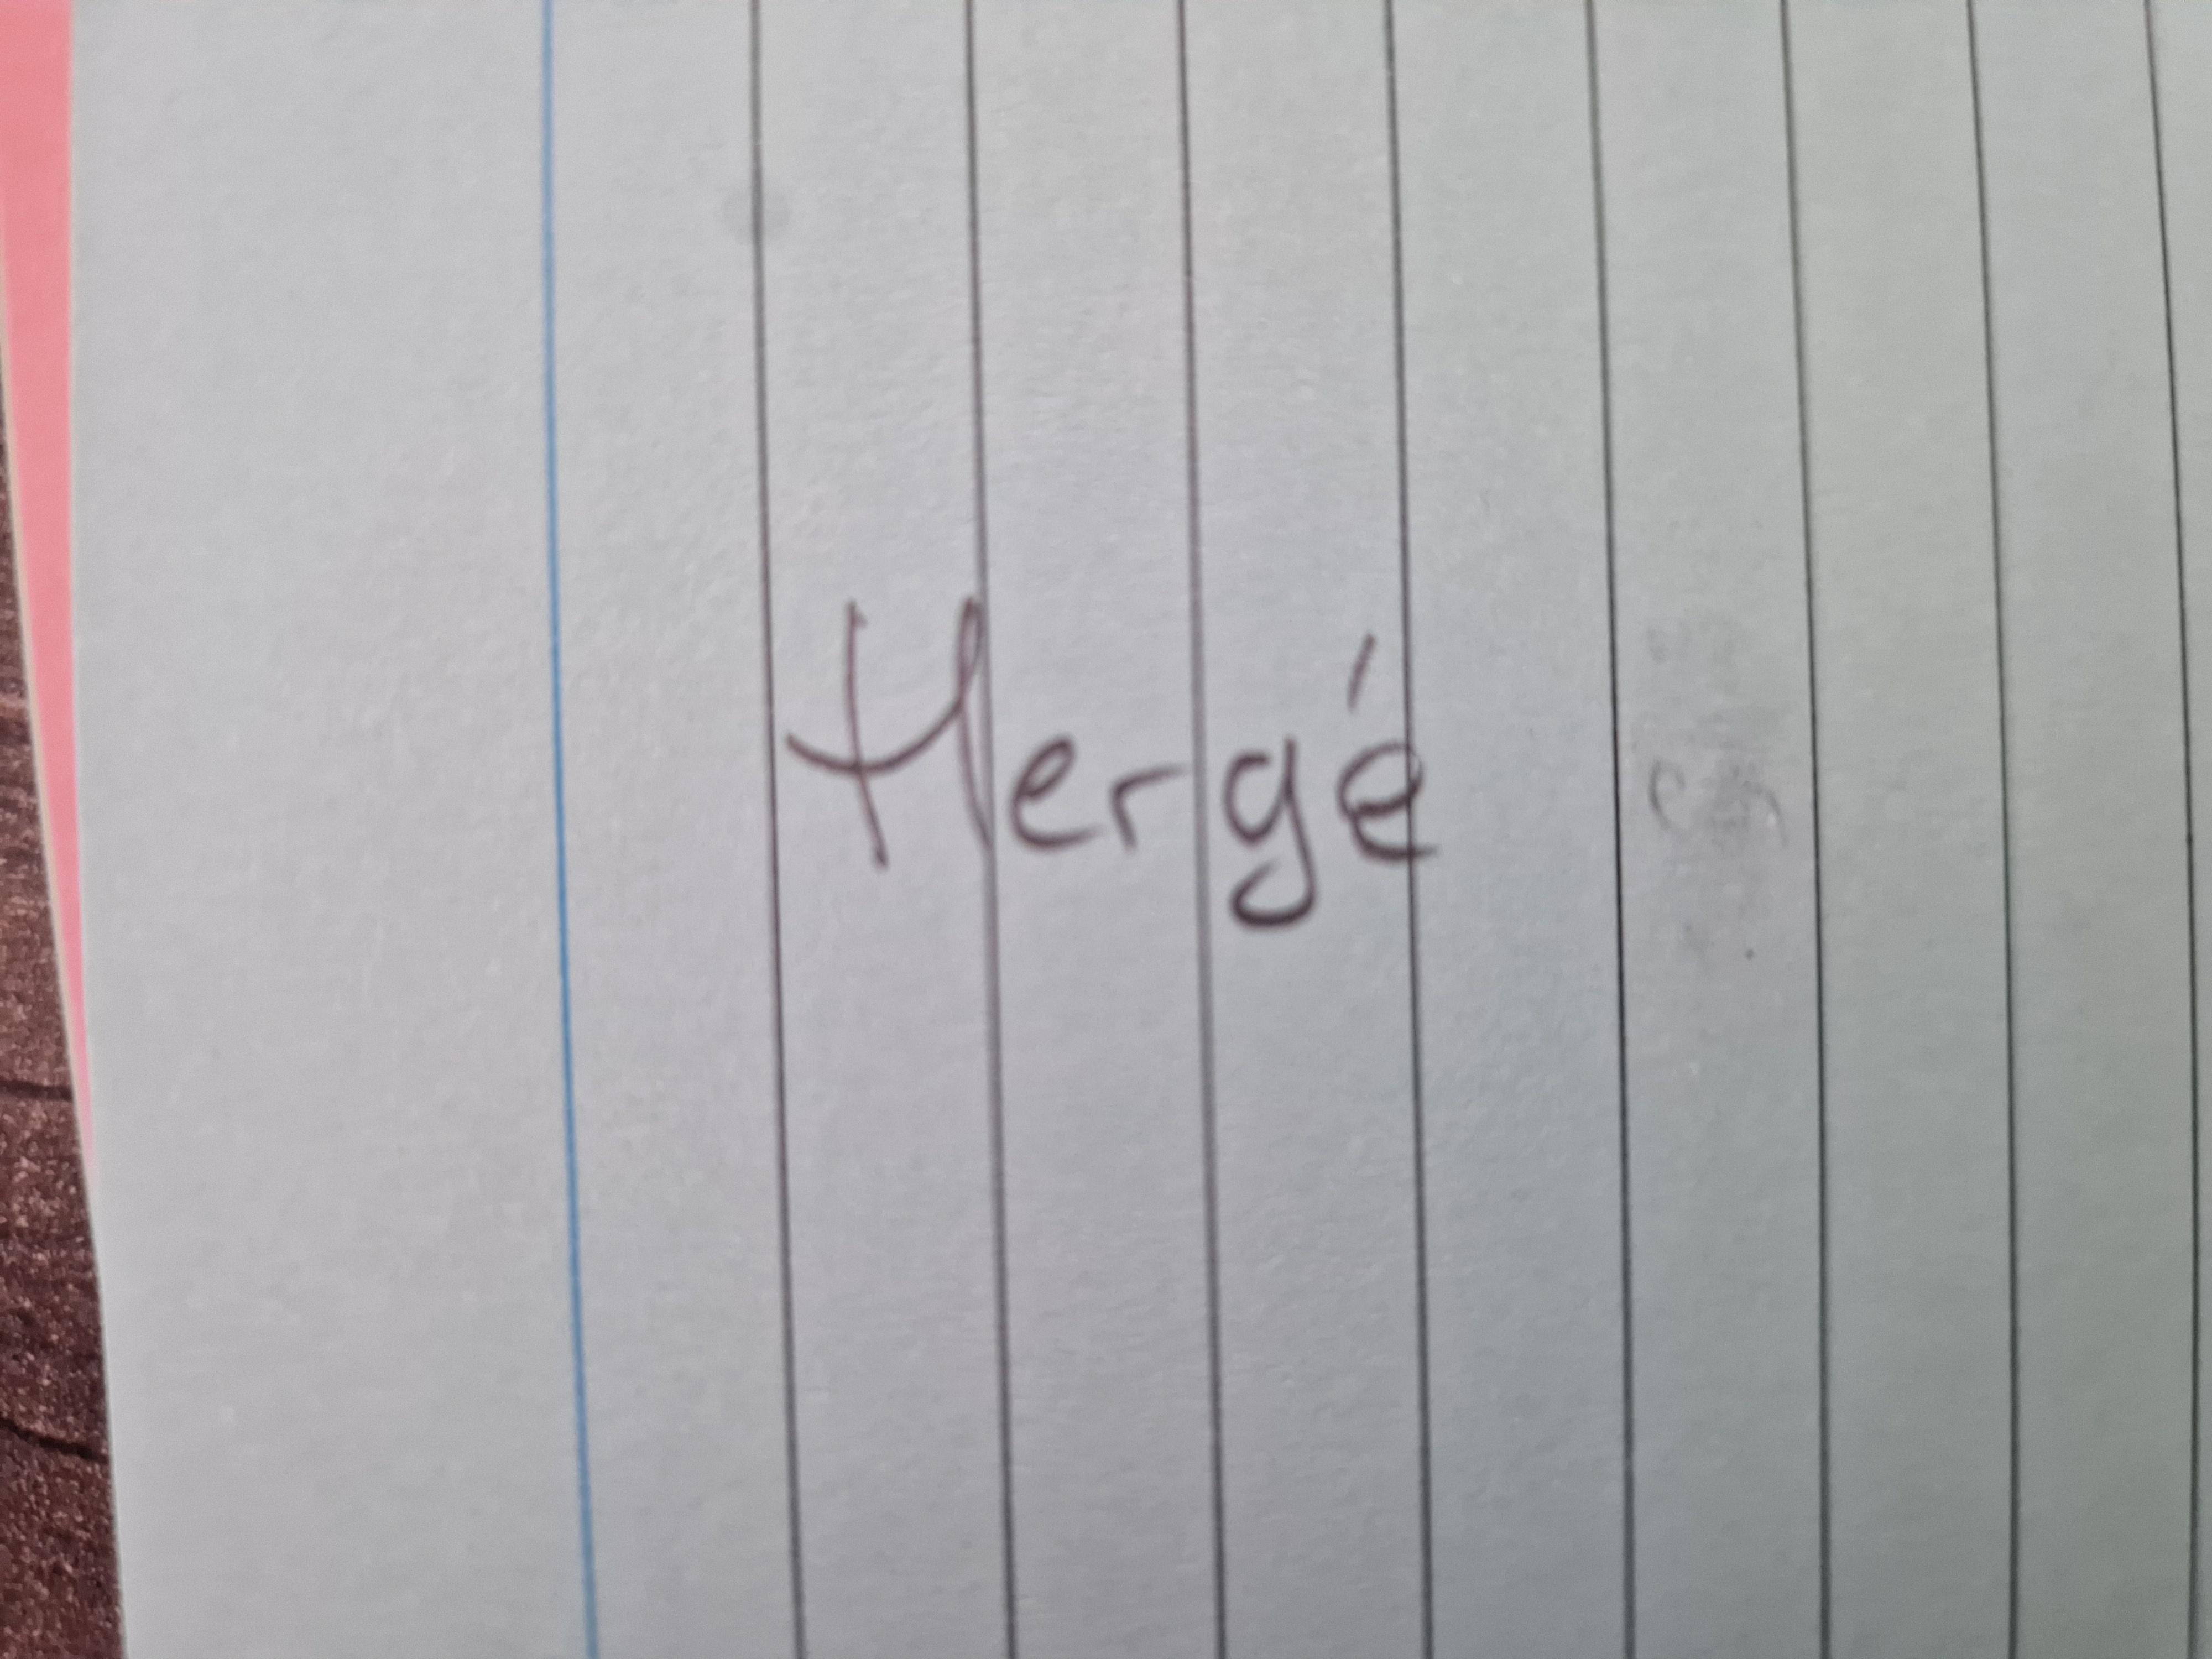 Hergé